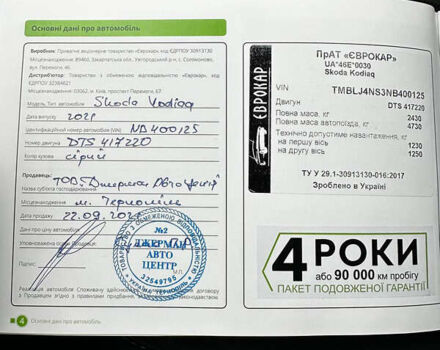 Основні дані про автомобіль
Виробник: Приватне акціонерне товариство «Єврокар», код ЄДРПОУ 30913130
Місцезнаходження: 89460, Закарпатська обл., Ужгородський р-н, с. Соломоново,
вул. Перемоги, 46.
Дистриб'ютор: Товариство з обмеженою відповідальністю «Єврокар», код ЄДРПОУ
Місцезнаходження: 03062, м. Київ, проспект Перемоги, 67.
Модель, Тип автомобіля Skoda Kodiaq
Дата випуску 2021
Ідентифікаційний номер автомобіля (VIN) NB400125
Номер двигуна DTS 417220
Колір кузова сірий
Продавець: ТОВ "Джерман Авто Центр"
Назва суб'єкта господарювання
Місцезнаходження м. Тернопіль
Дата продажу 22.09.2021
Дані про ціну автомобіля
Уповноважена особа Продавця
Підпис:
М.П.
№2
ДЖЕРМАН
АВТО
ЦЕНТР
32549795
4 Основні дані про автомобіль
ЄВРОКАР
ПрАТ «ЄВРОКАР»
UA*46E*0030
Skoda Kodiaq
VIN TMBLJ4NS3NB400125
Двигун DTS 417220
Повна маса, кг 2430
Повна маса автопоїзда, кг 4730
Технічно допустиме навантаження, кг
на першу вісь 1250
на другу вісь 1250
ТУ У 29.1-30913130-016:2017
Зроблено в Україні
4 РОКИ
або 90 000 км пробігу
ПАКЕТ ПОДОВЖЕНОЇ ГАРАНТІЇ